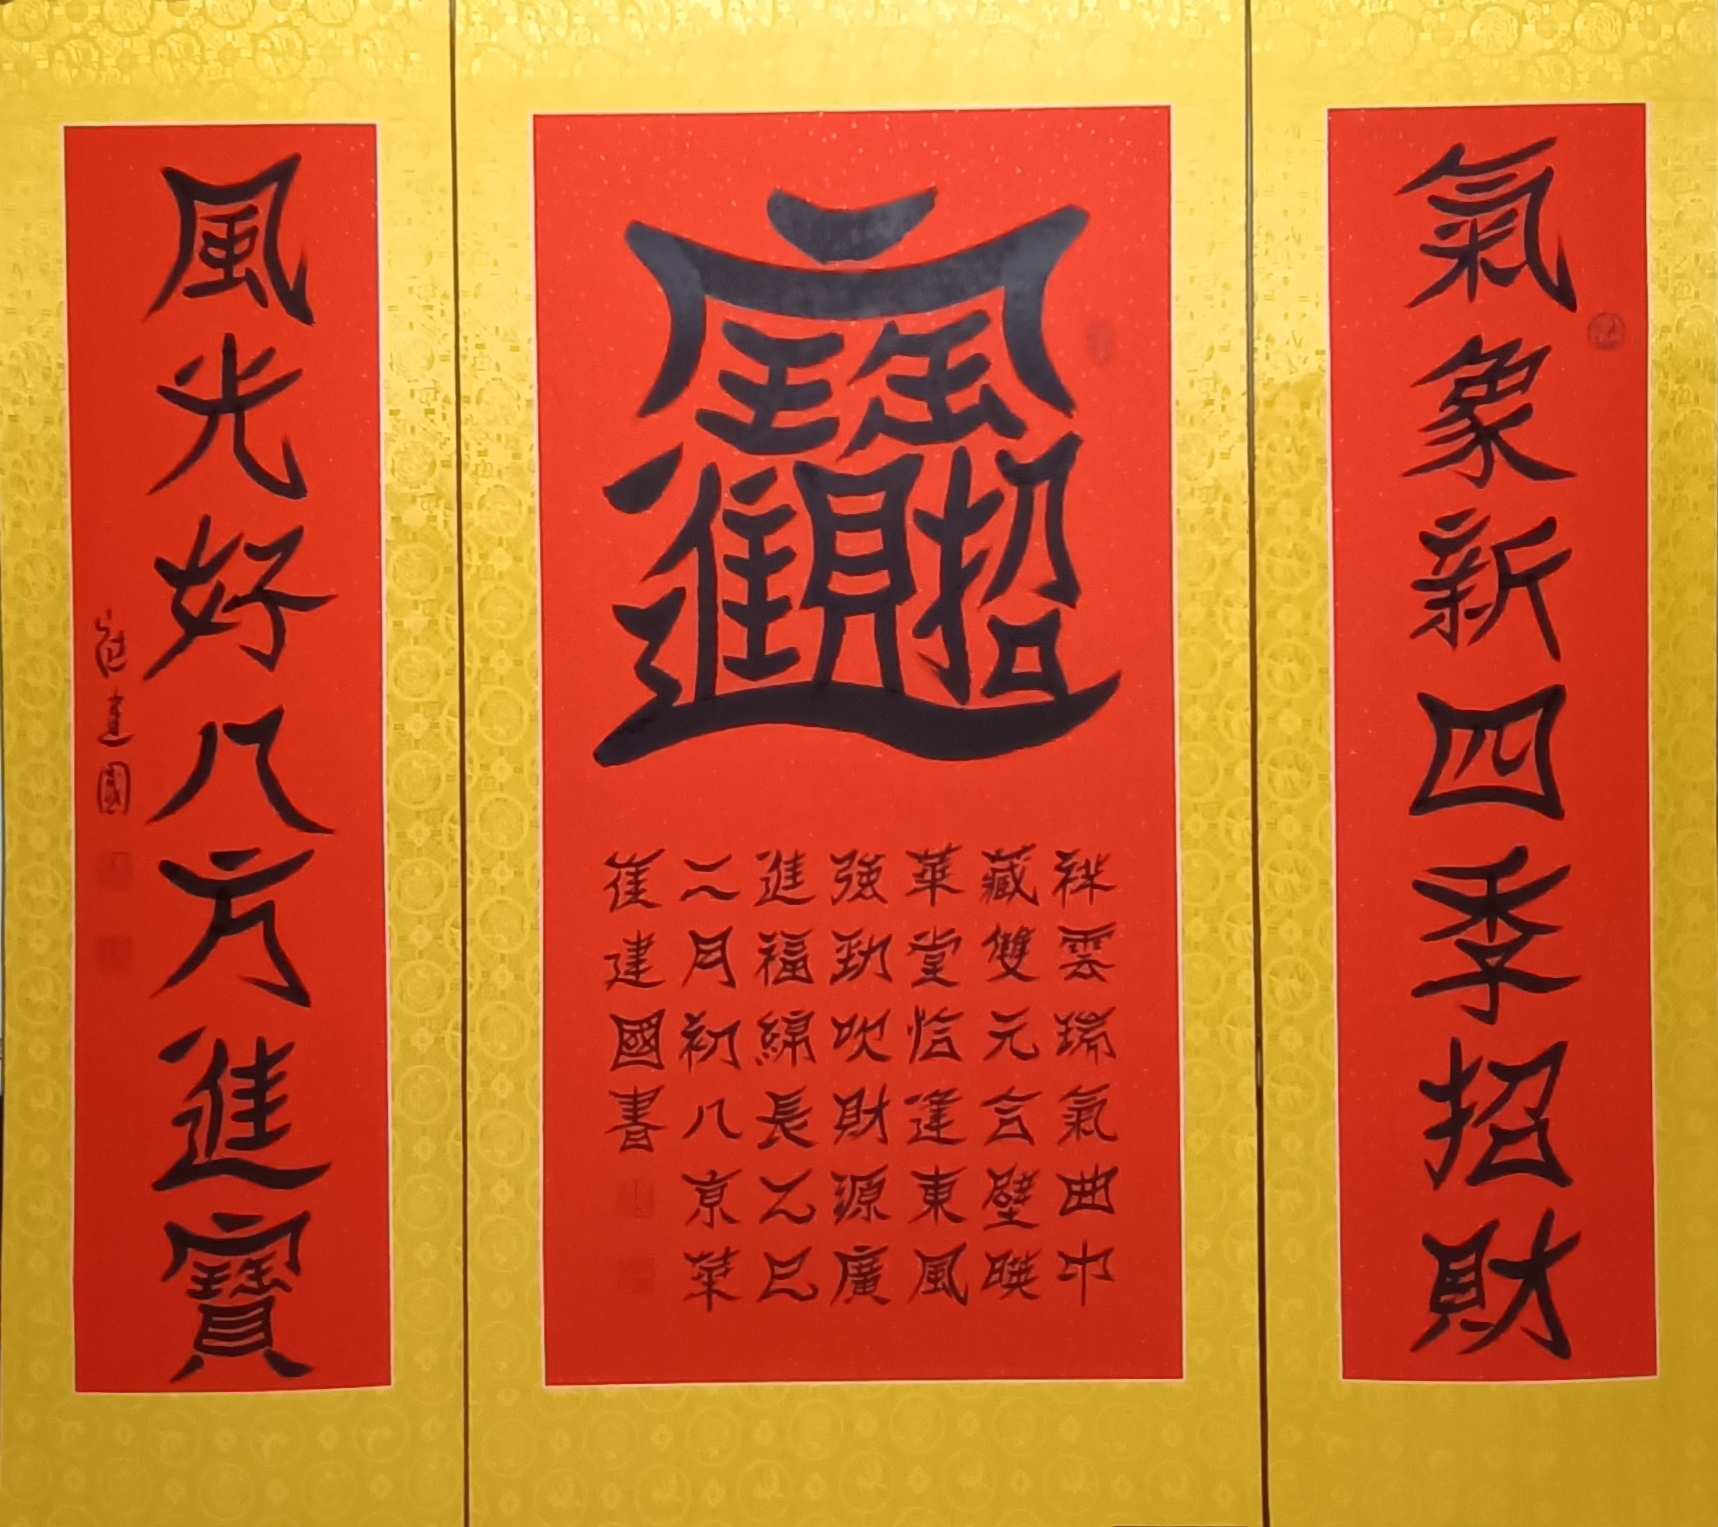 氣象新四季招財
招財進寶
祥雲瑞氣曲中
藏雙元合璧暎
華堂恰逢東風
強勁吹財源廣
進福綿長乙巳
二月初八京華
崔建國書
風光好八方進寶
崔建國